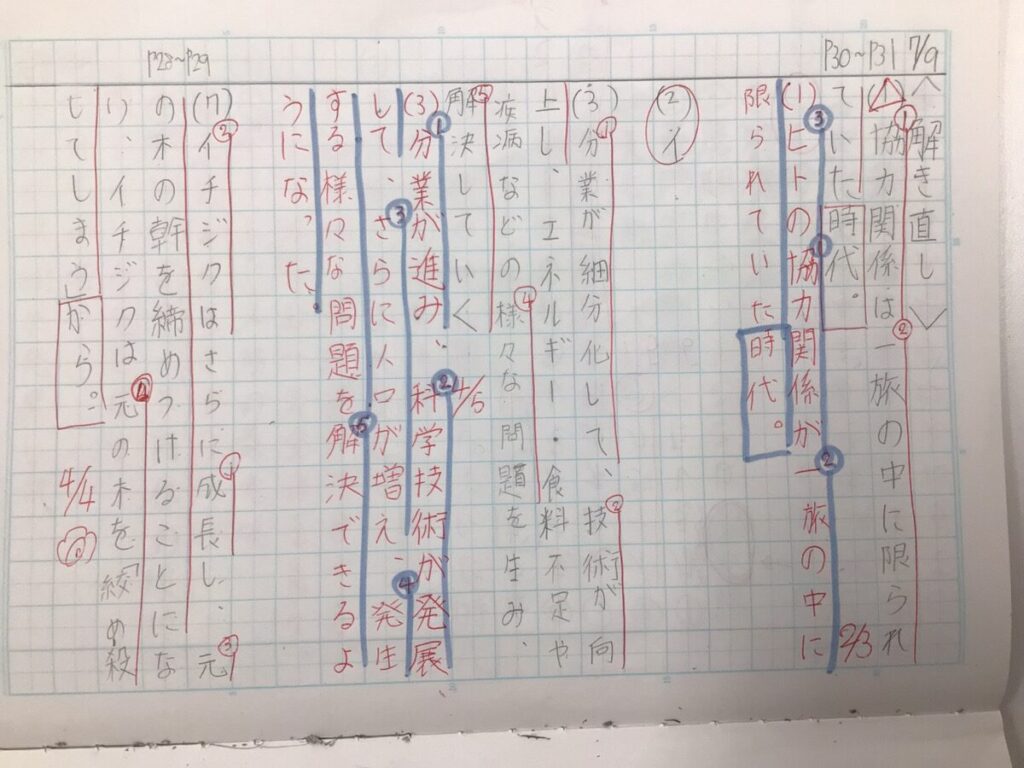 7/9
P30~P31
<解き直し>
(1)協力関係は一旅の中に限られ
ていた時代。
2/3
(1)ヒトの協力関係が一旅の中に
限られていた時代。
(2)イ
(3)分業が細分化して、技術が向
上し、エネルギー・食料不足や
疾病などの様々な問題を生み、
解決していく
4/5
(3)分業が進み、科学技術が発展
して、さらに人口が増え、発生
する様々な問題を解決できるよ
うになった。
P28~P29
(7)イチジクはさらに成長し、元
の木の幹を締めつけることにな
り、イチジクは元の木を「絞め殺
してしまう」から。
4/4